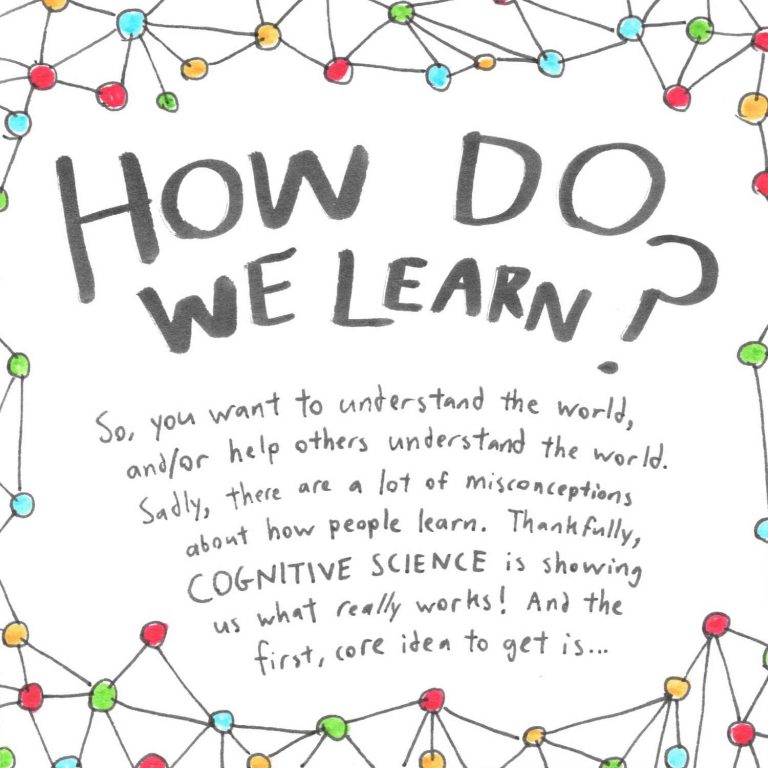 HOW DO
WE LEARN?
So, you want to understand the world,
and/or help others understand the world.
Sadly, there are a lot of misconceptions
about how people learn. Thankfully,
COGNITIVE SCIENCE is showing
us what really works! And the
first, core idea to get is...